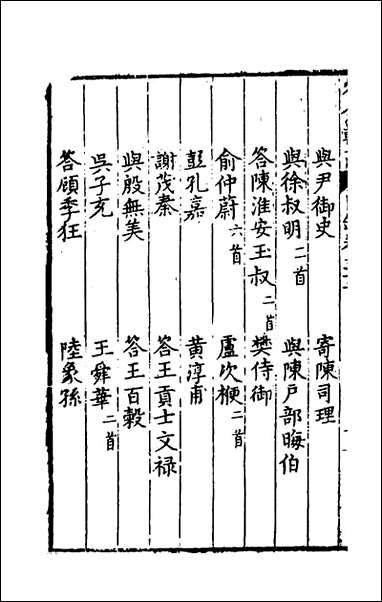 與尹御史　寄陳司理
與徐叔明二首　與陳戶部晦伯
答陳淮安玉叔二首　樊侍御
俞仲蔚六首　盧次楩二首
彭孔嘉　黃淳甫
謝茂秦　答王貢士文祿
與殷無美　答王百穀
吳子充　王舜華二首
答顧季狂　陸象孫